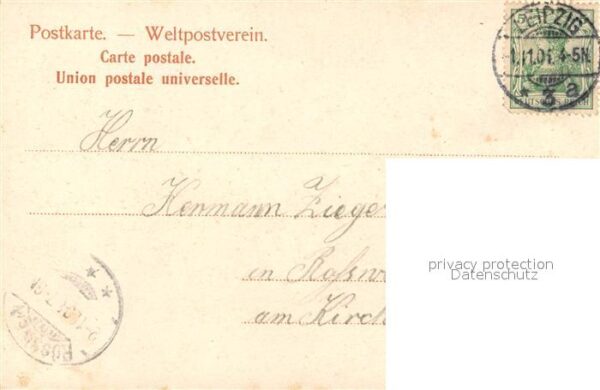 Postkarte. — Weltpostverein.
Carte postale.
Union postale universelle.
5
LEIPZIG
4-5N.
* 3 a
Herrn
Hermann Zieger
in Rossw
am Kirch
privacy protection
Datenschutz